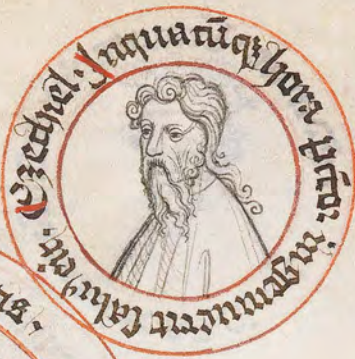 Ezechiel. Inquacūqȝ hora pctōr ingemuerit saluꝰ eiͥt.